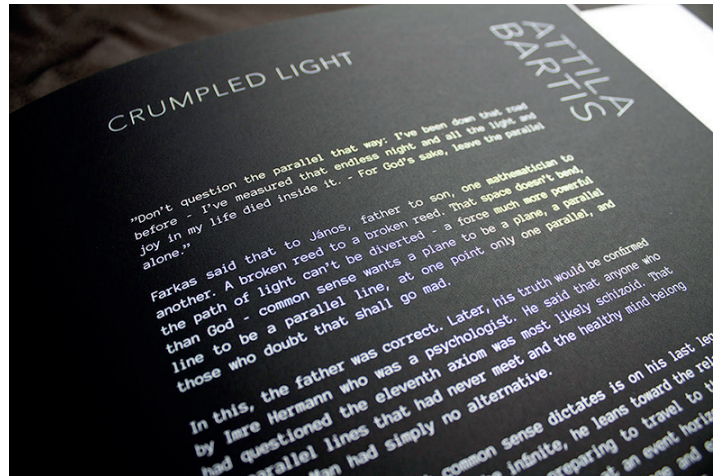 CRUMPLED LIGHT
ATTILA
BARTIS
"Don't question the parallel that way: I've been down that road
before - I've measured that endless night and all the light and
joy in my life died inside it. - For God's sake, leave the parallel
alone."
Farkas said that to János, father to son, one mathematician to
another. A broken reed to a broken reed. That space doesn't bend,
the path of light can't be diverted - a force much more powerful
than God - common sense wants a plane to be a plane, a parallel
line to be a parallel line, at one point only one parallel, and
those who doubt that shall go mad.
In this, the father was correct. Later, his truth would be confirmed
by Imre Hermann who was a psychologist. He said that anyone who
had questioned the eleventh axiom was most likely schizoid. That
parallel lines that had never meet and the healthy mind belong
had simply no alternative.
common sense dictates is on his last
infinite, he leans toward the
preparing to travel to
an event